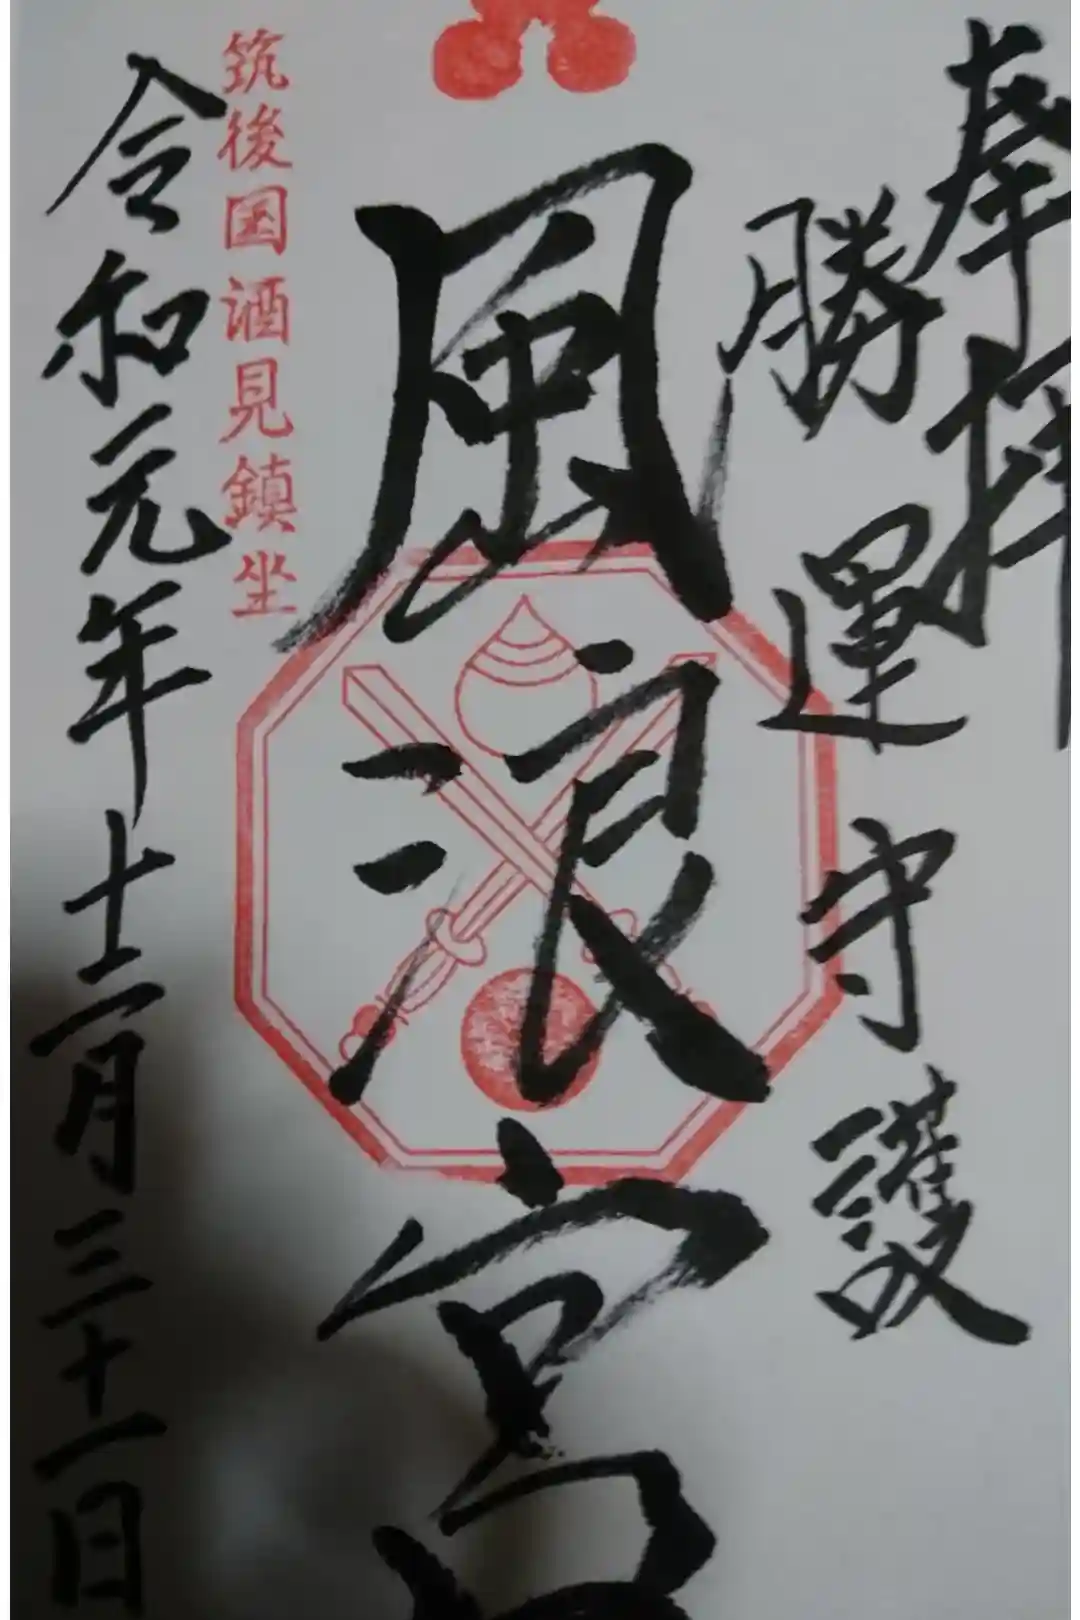 奉拝
勝運守護
風浪宮
筑後国酒見鎮坐
令和元年十二月三十一日